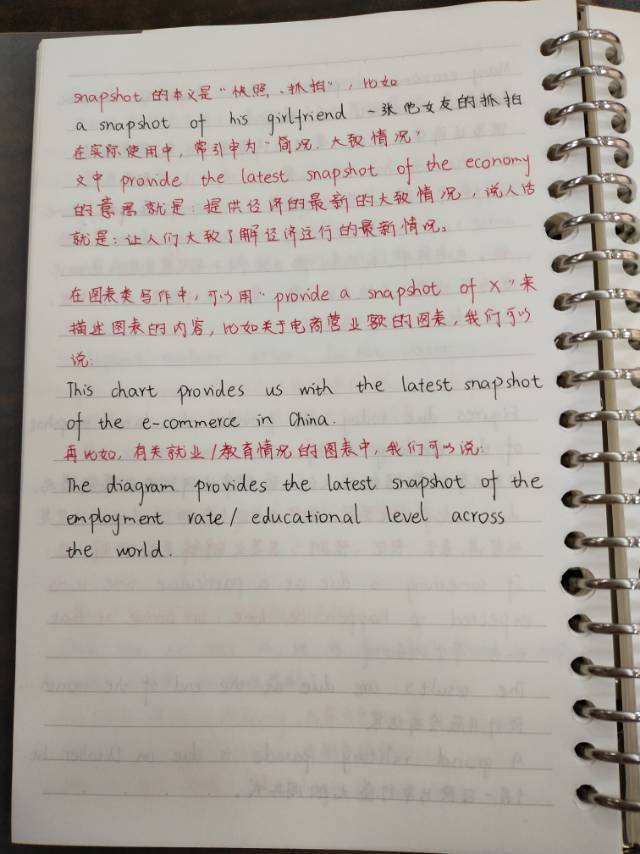 snapshot 的本义是"快照、抓拍"，比如
a snapshot of his girlfriend 一张他女友的抓拍
在实际使用中，常引申为"简况、大致情况"
文中 provide the latest snapshot of the economy
的意思就是：提供经济的最新的大致情况，说人话
就是：让人们大致了解经济运行的最新情况。
在图表类写作中，可以用"provide a snapshot of X"来
描述图表的内容，比如关于电商营业额的图表，我们可以
说：
This chart provides us with the latest snapshot
of the e-commerce in China.
再比如，有关就业/教育情况的图表中，我们可以说：
The diagram provides the latest snapshot of the
employment rate/ educational level across
the world.